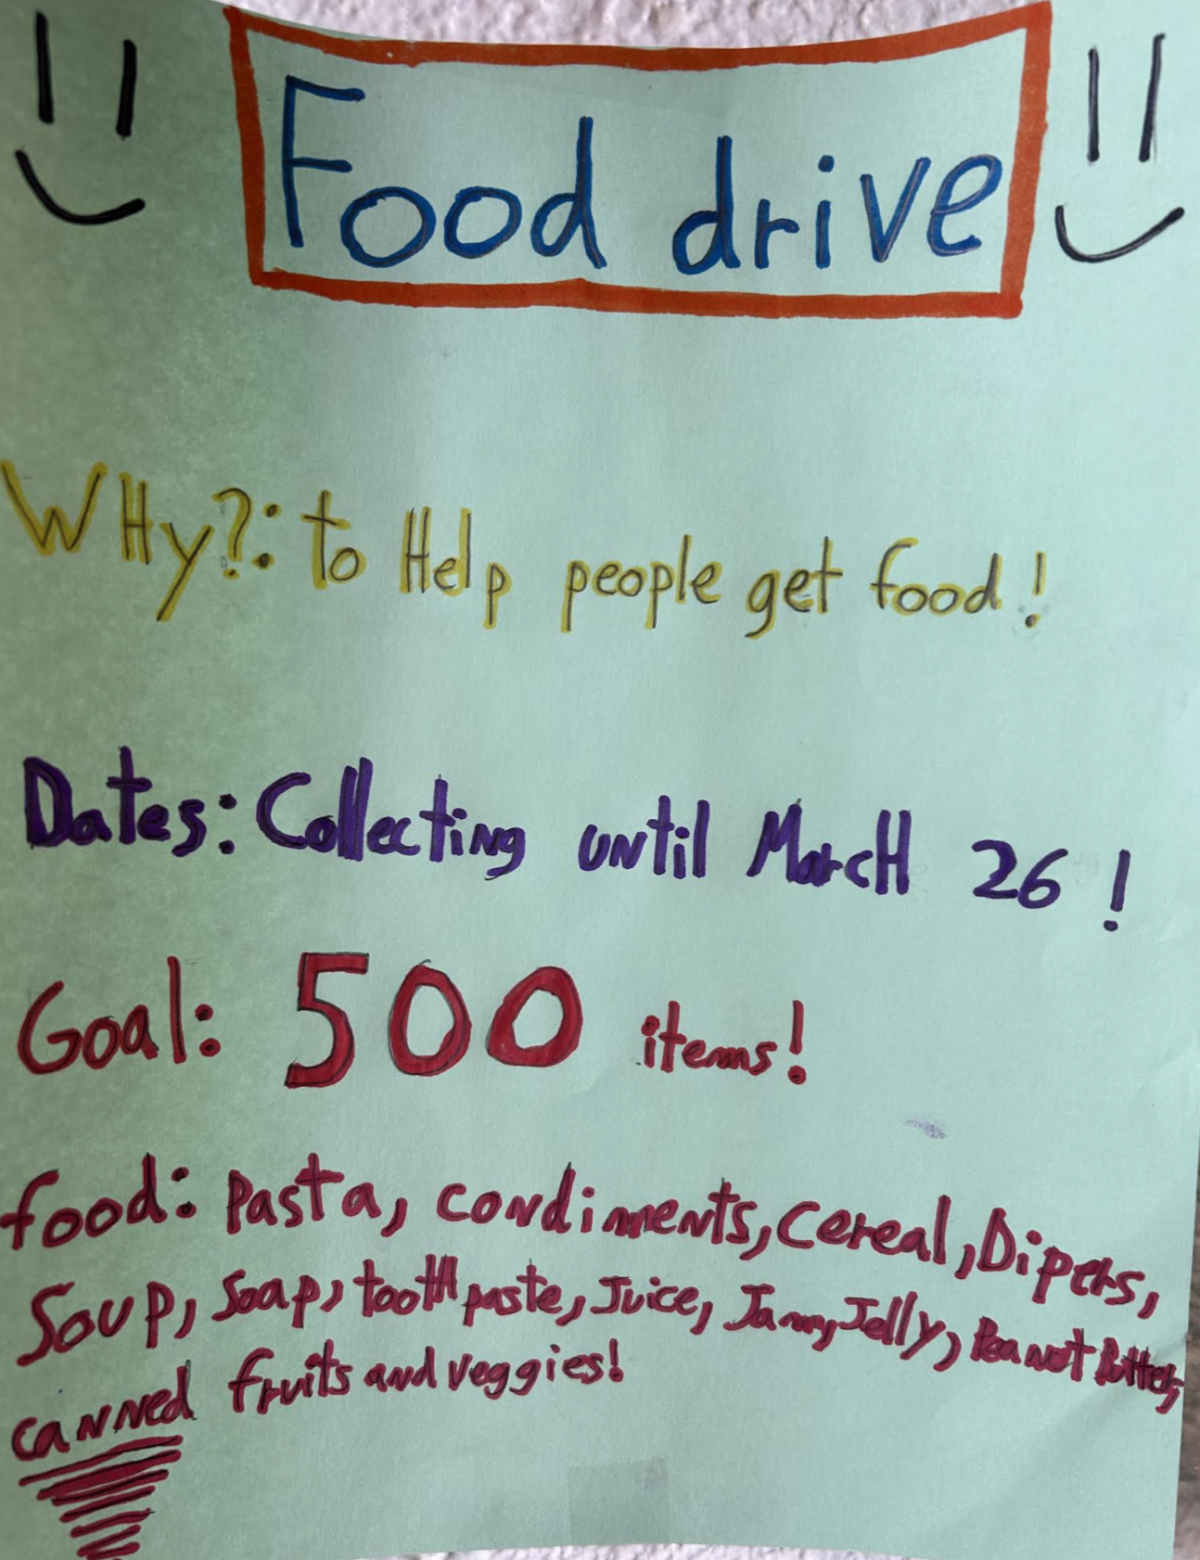 Food drive
WHy?: to Help people get food!
Dates: Collecting until MarcH 26!
Goal: 500 items!
food: Pasta, condiments, Cereal, Dipers,
Soup, Soap, tootHpaste, Juice, Jam, Jelly, Peanut Butter,
canned fruits and veggies!